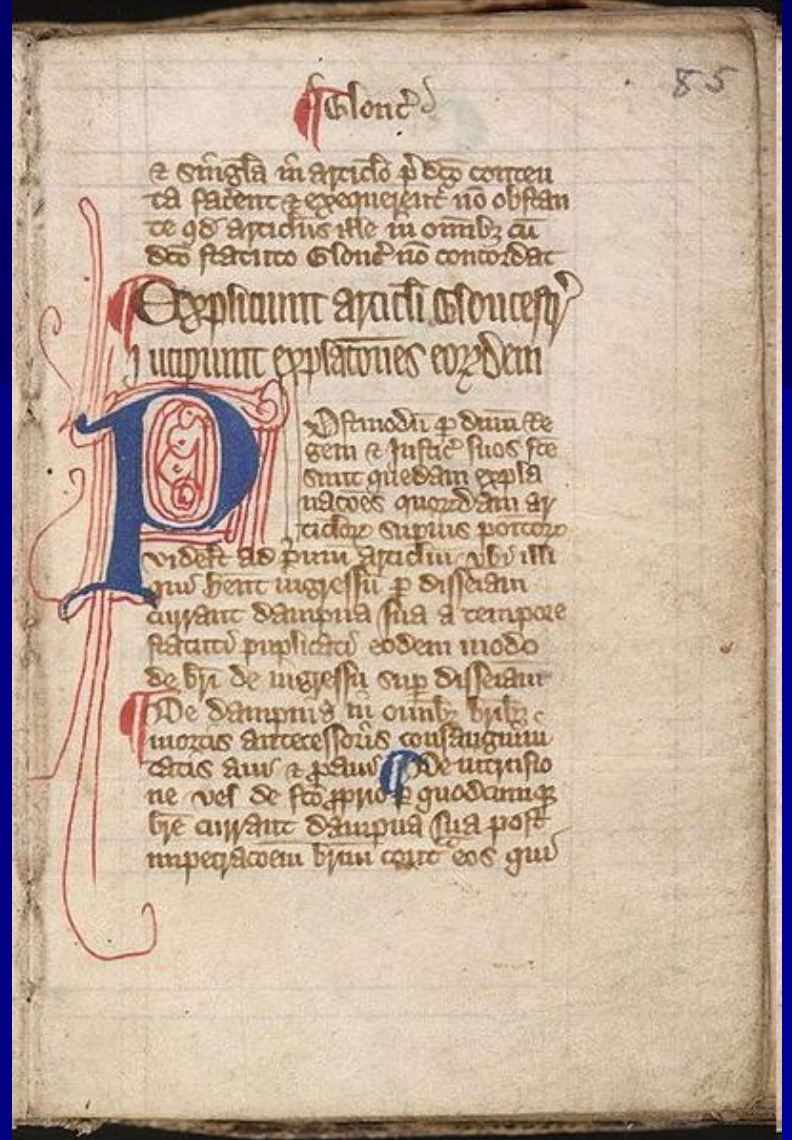 Glouc̄
85
⁊ singl̄a in articlo p̄dc̄o conten
ta facient ⁊ exequerent᷑ nō obstan
te qd̛ articlus ille in omībꝫ cū
dc̄o statuto Glouc̄ nō concordat
Expliciunt articl̄i Gloucestr̄
Incipiunt expl̄atōnes eorꝫdem
Postmodū ꝑ dn̄m Re
gem ⁊ Justic̄ suos fc̄e
sunt quedam expla
nac̄ōes quorꝫdam ar
ticlorꝫ superius poitorꝫ
videlt ad p̄mū articlm̄ vbi illi
qui hent ingressū ꝑ disseiam
currant dampna sua a tempore
statuti puplicati eodem modo
de br̄i de ingressu suꝑ disseiam
De dampnis in omībꝫ br̄ibꝫ
mortis antecessoris consanguini
tatis aui ⁊ ꝓaui De intrusio
ne vel de fc̄o ꝓprio ꝑ quodcumqꝫ
br̄e currant dampna sua post
impetrac̄oem br̄ium cont᷑ eos qui